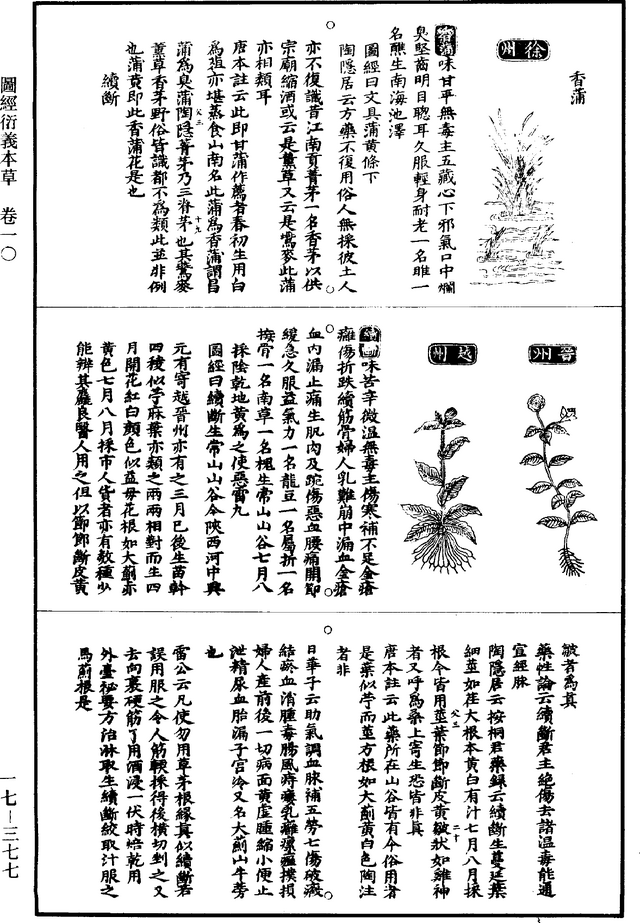 圖經衍義本草　卷一〇
一七—三七七
徐州
香蒲
香蒲味甘平無毒主五藏心下邪氣口中爛
臭堅齒明目聰耳久服輕身耐老一名睢一
名醮生南海池澤
圖經曰文具蒲黃條下
陶隱居云方藥不復用俗人無採彼土人
亦不復識昔江南貢菁茅一名香茅以供
宗廟縮酒或云是薰草又云是鷰麥此蒲
亦相類耳
唐本註云此即甘蒲作薦者春初生用白
為葅亦堪蒸食山南名此蒲為香蒲謂昌
蒲為臭蒲陶隱菁茅乃三脊茅也其鷰麥
薰草香茅野俗皆識都不為類此並非例
也蒲黃即此香蒲花是也
父三
十九
續斷
晉州
越州
續斷味苦辛微溫無毒主傷寒補不足金瘡
癰傷折跌續筋骨婦人乳難崩中漏血金瘡
血內漏止痛生肌肉及踠傷惡血腰痛關節
緩急久服益氣力一名龍豆一名屬折一名
接骨一名南草一名槐生常山山谷七月八
採陰乾地黃為之使惡雷丸
圖經曰續斷生常山山谷今陝西河中興
元有寄越晉州亦有之三月已後生苗幹
四稜似苧麻葉亦類之兩兩相對而生四
月開花紅白顏色似益母花根如大薊赤
黃色七月八月採市人貨者亦有數種少
能辨其麤良醫人用之但以節節斷皮黃
皺者為真
藥性論云續斷君主絕傷去諸溫毒能通
宣經脉
陶隱居云按桐君藥錄云續斷生蔓延葉
細莖如荏大根本黃白有汁七月八月採
根今皆用莖葉節節斷皮黃皺狀如雞脚
者又呼為桑上寄生恐皆非真
父三
二十
唐本註云此藥所在山谷皆有今俗用者
是葉似苧而莖方根如大薊黃白色陶注
者非
日華子云助氣調血脉補五勞七傷破癥
結瘀血消腫毒腸風痔瘻乳癰瘰癧撲損
婦人產前後一切病面黃虛腫縮小便止
泄精尿血胎漏子宮冷又名大薊山牛蒡
也
雷公云凡使勿用草茅根緣真似續斷若
誤用服之令人筋軟採得後橫切剉之又
去向裏硬筋了用酒浸一伏時焙乾用
外臺祕要方治淋取生續斷絞取汁服之
馬薊根是